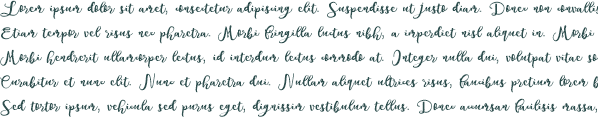 Lorem ipsum dolor sit amet, consectetur adipiscing elit. Suspendisse ut justo diam. Donec non convallis
Etiam tempor vel risus nec pharetra. Morbi fringilla luctus nibh, a imperdiet nisl aliquet in. Morbi
Morbi hendrerit ullamcorper lectus, id interdum lectus commodo at. Integer nulla dui, volutpat vitae so
Curabitur et nunc elit. Nunc et pharetra dui. Nullam aliquet ultrices risus, faucibus pretium lorem
Sed tortor ipsum, vehicula sed purus eget, dignissim vestibulum tellus. Donec accumsan facilisis massa,